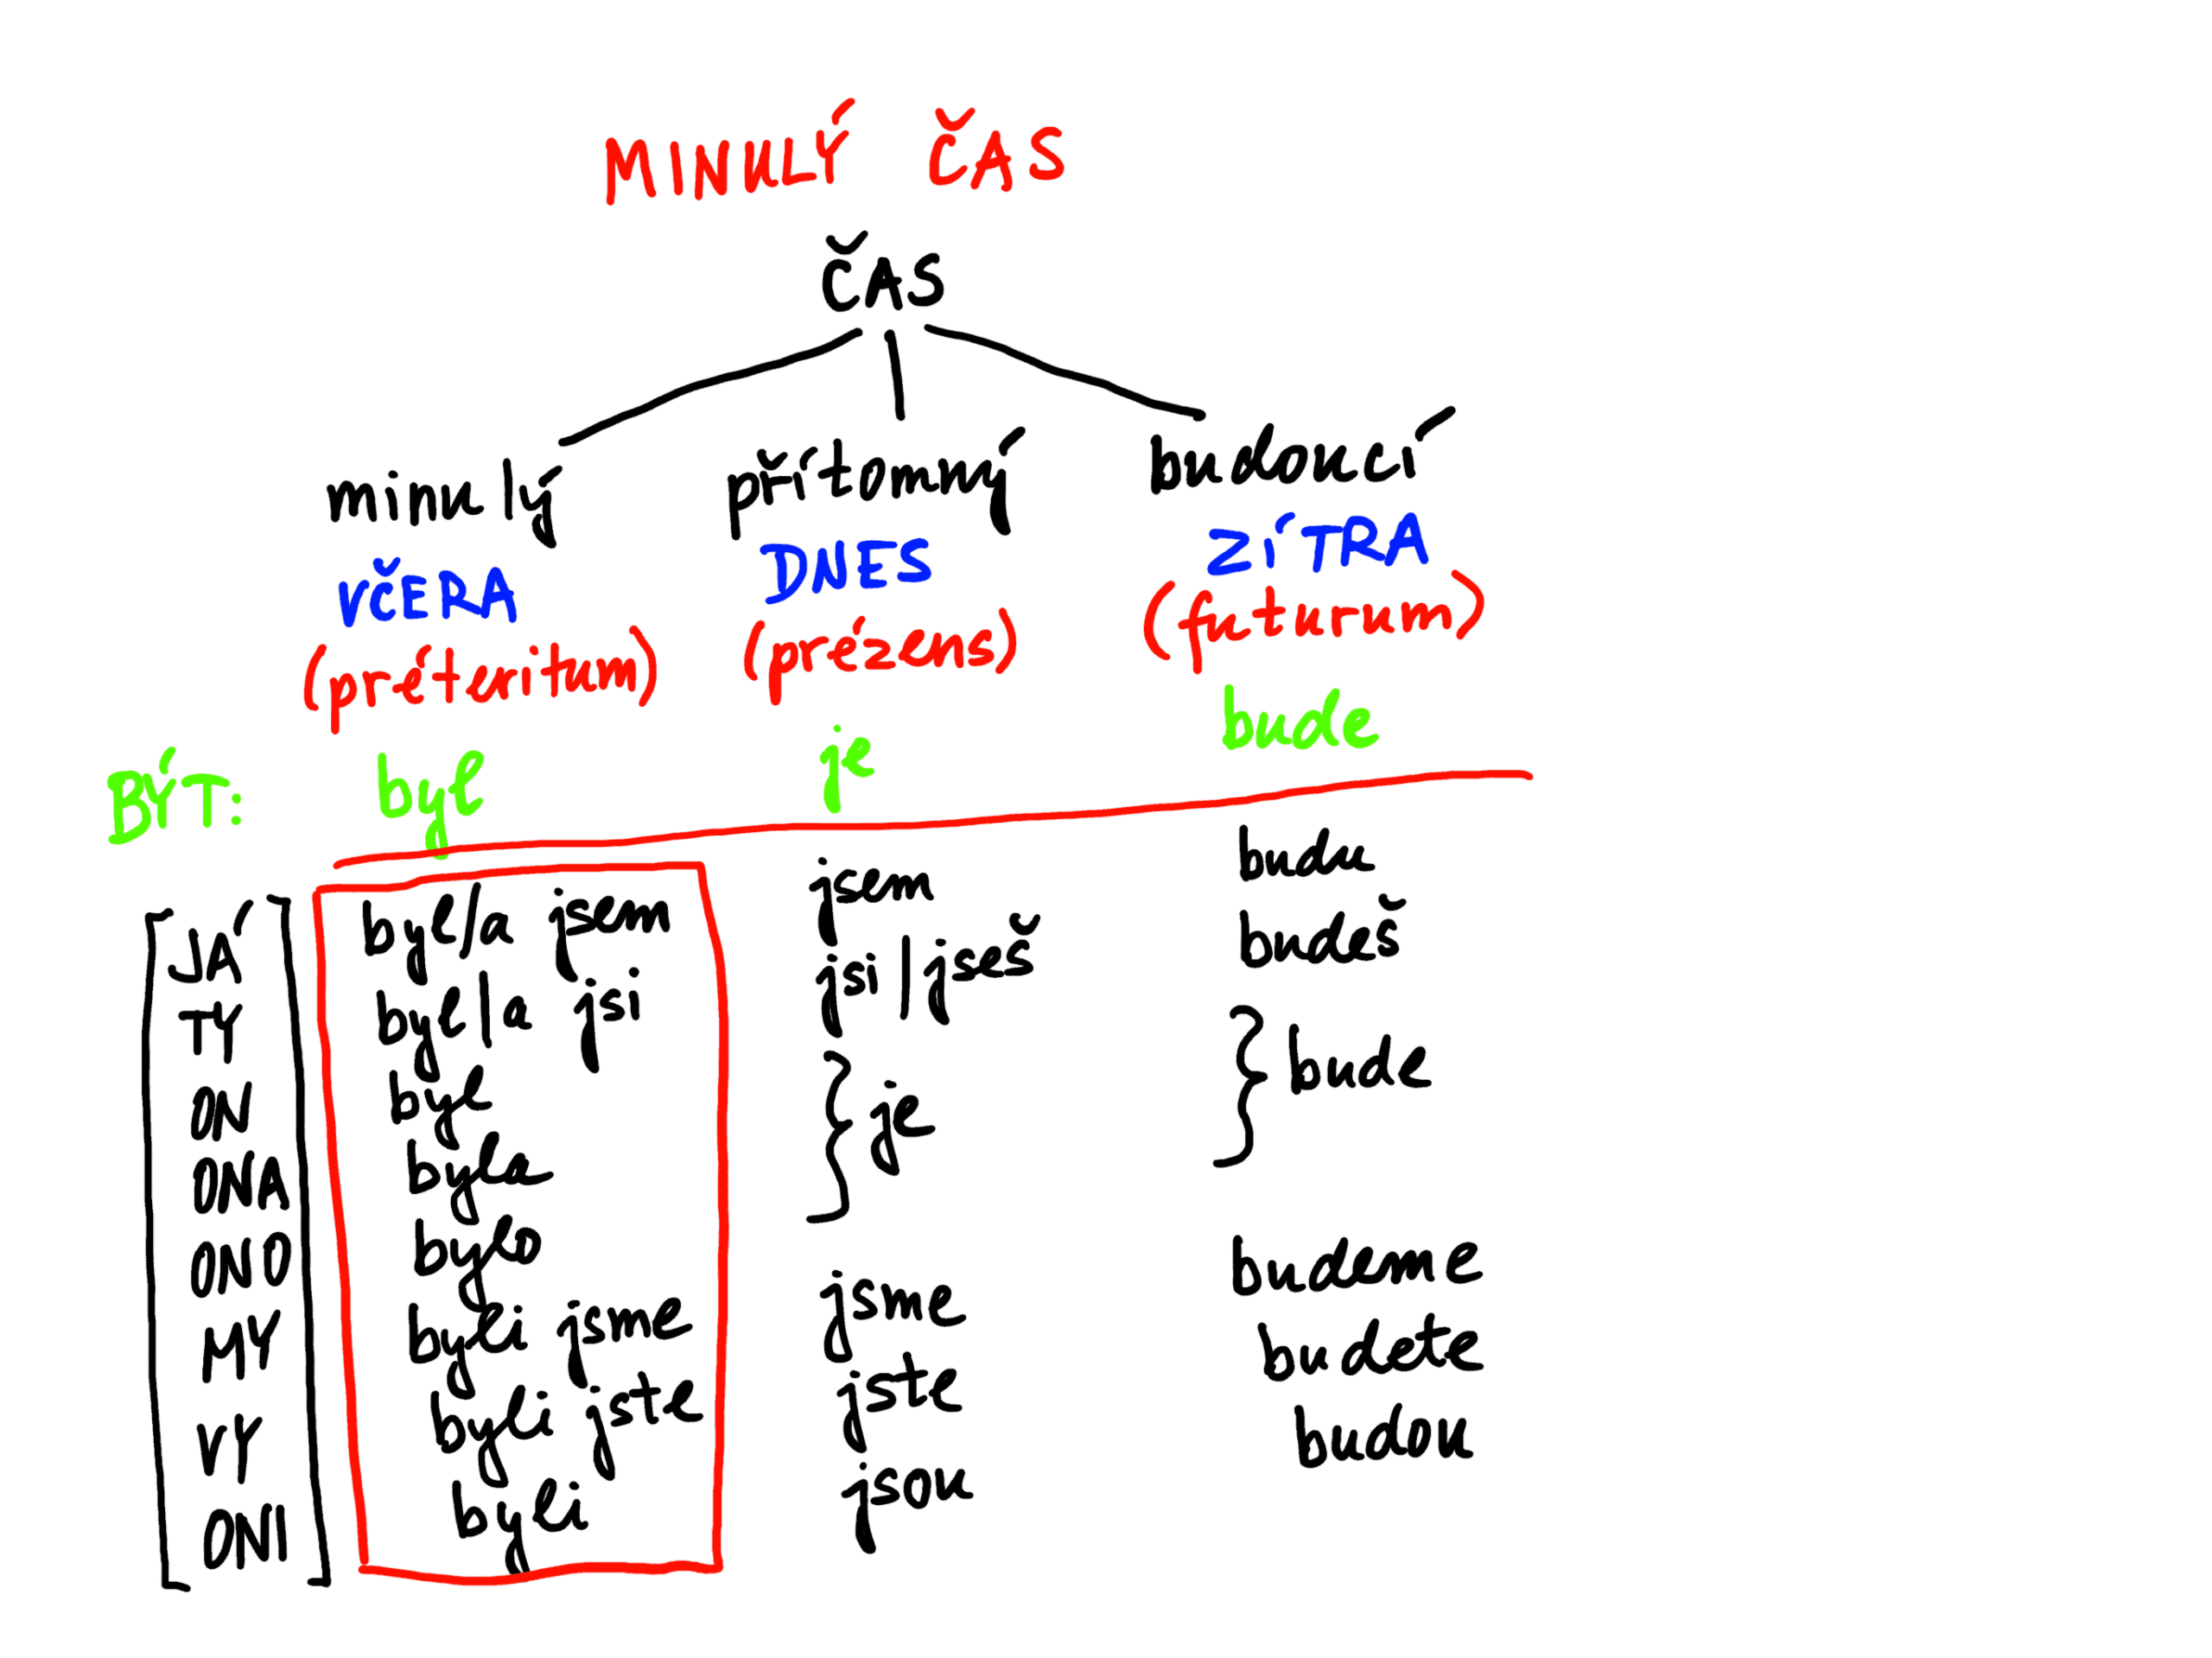 MINULÝ ČAS
ČAS
minulý přítomný budoucí
VČERA DNES ZÍTRA
(préteritum) (prézens) (futurum)
BÝT: byl je bude
JÁ byl/a jsem jsem budu
TY byl/a jsi jsi/jseš budeš
ON byl } je } bude
ONA byla
ONO bylo
MY byli jsme jsme budeme
VY byli jste jste budete
ONI byli jsou budou